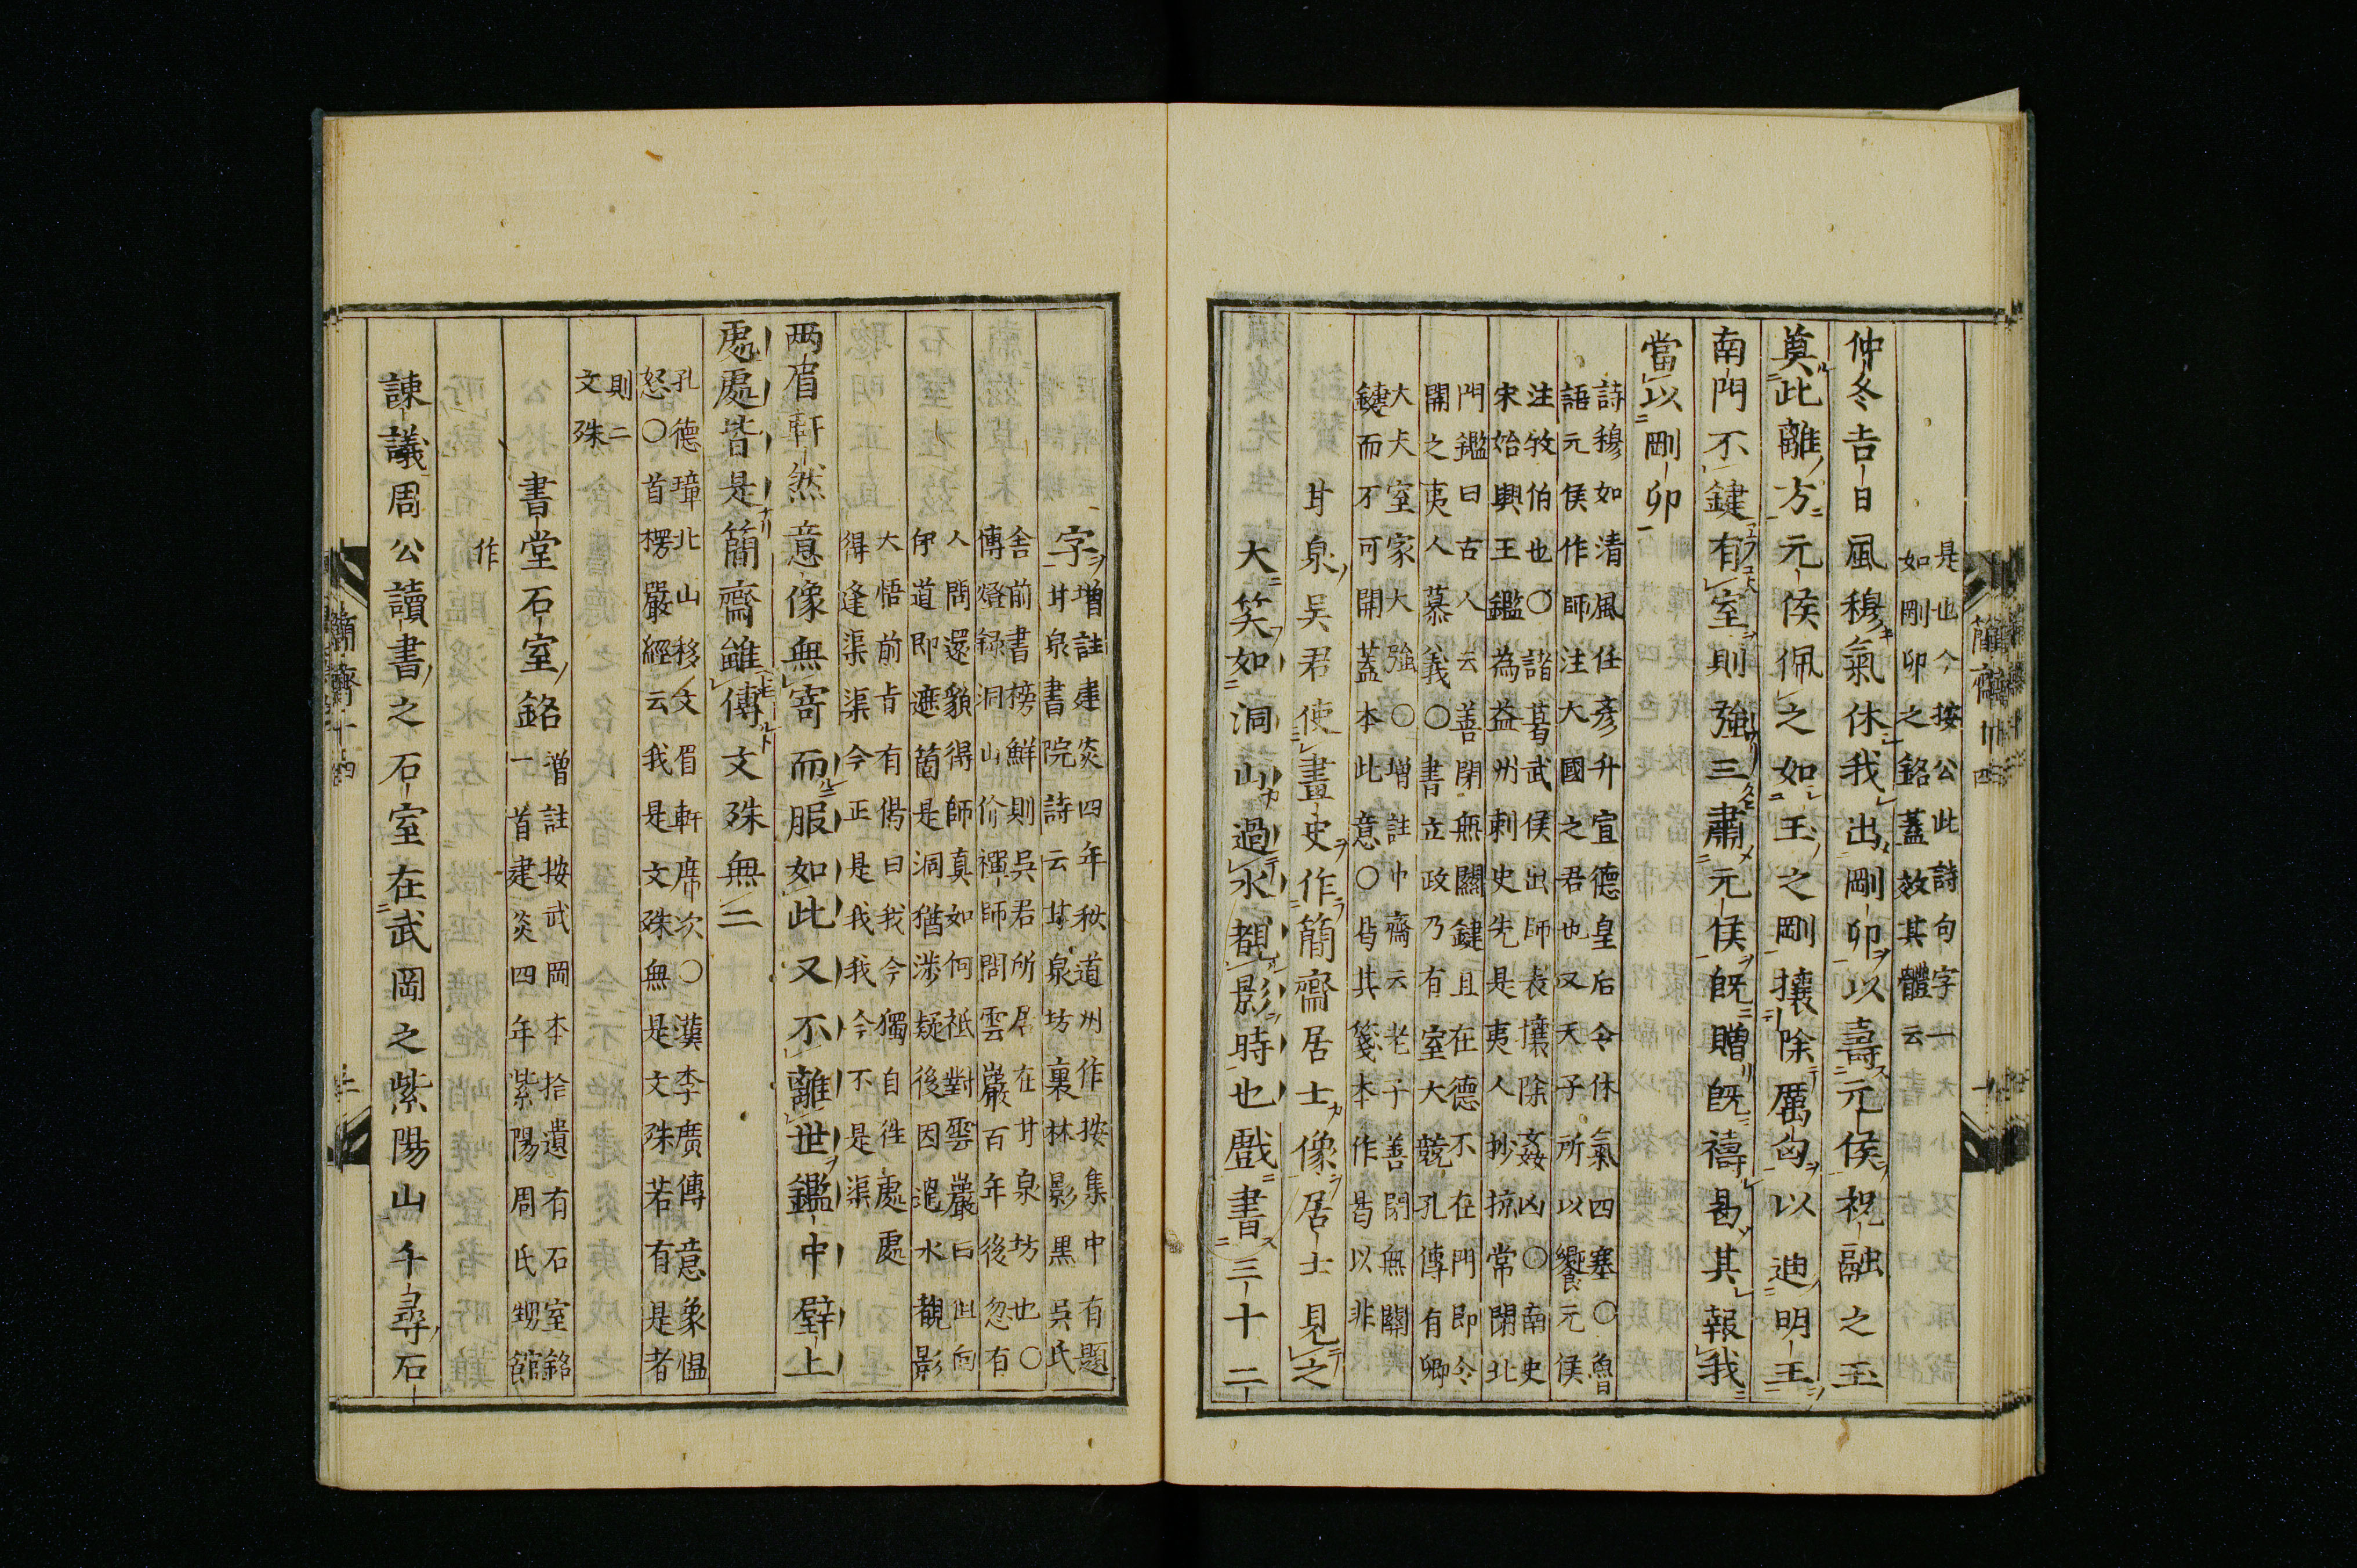 是也今按公此詩句字一
如剛卯之銘蓋效其體云
仲冬吉日風穆氣休我出剛卯以壽元侯祝融之玉
奠此離方元侯佩之如玉之剛攘除厲凶以迪明王
南門不鍵有室則強三肅元侯旣贈旣禱曷其報我
當以剛卯
詩穆如清風任彥升宣德皇后令休氣四塞○魯
語元侯作師注大國之君也又天子所以饗元侯
注牧伯也○諸葛武侯出師表攘除姦凶○南史
宋始興王鑑為益州刺史先是夷人抄掠常閉北
門鑑曰古人云善閉無關鍵且在德不在門即令
開之夷人慕義○書立政乃有室大競孔傳有卿
大夫室家大強○增註中齋云老子善閉無關
鍵而不可開蓋本此意○曷其箋本作曷以非
甘泉吳君使畫史作簡齋居士像居士見之
大笑如洞山過水覩影時也戲書三十二
字增註建炎四年秋道州作按集中有題
甘泉書院詩云甘泉坊裏林影黑吳氏
舍前書榜鮮則吳君所居在甘泉坊也○
傳燈録洞山价禪師問雲巖百年後忽有
人問還貌得師真如何祗對雲巖曰但向
伊道即遮箇是洞猶涉疑後因過水覩影
大悟前旨有偈曰我今獨自徃處處
得逢渠渠今正是我我今不是渠
兩眉軒然意像無寄而服如此又不離世鑑中壁上
處處皆是簡齋雖傳文殊無二
孔德璋北山移文眉軒席次○漢李廣傳意象慍
怒○首楞嚴經云我是文殊無是文殊若有是者
則二
文殊
書堂石室銘
增註按武岡本拾遺有石室銘
一首建炎四年紫陽周氏甥館
作
諫議周公讀書之石室在武岡之紫陽山千尋石
簡齋十四